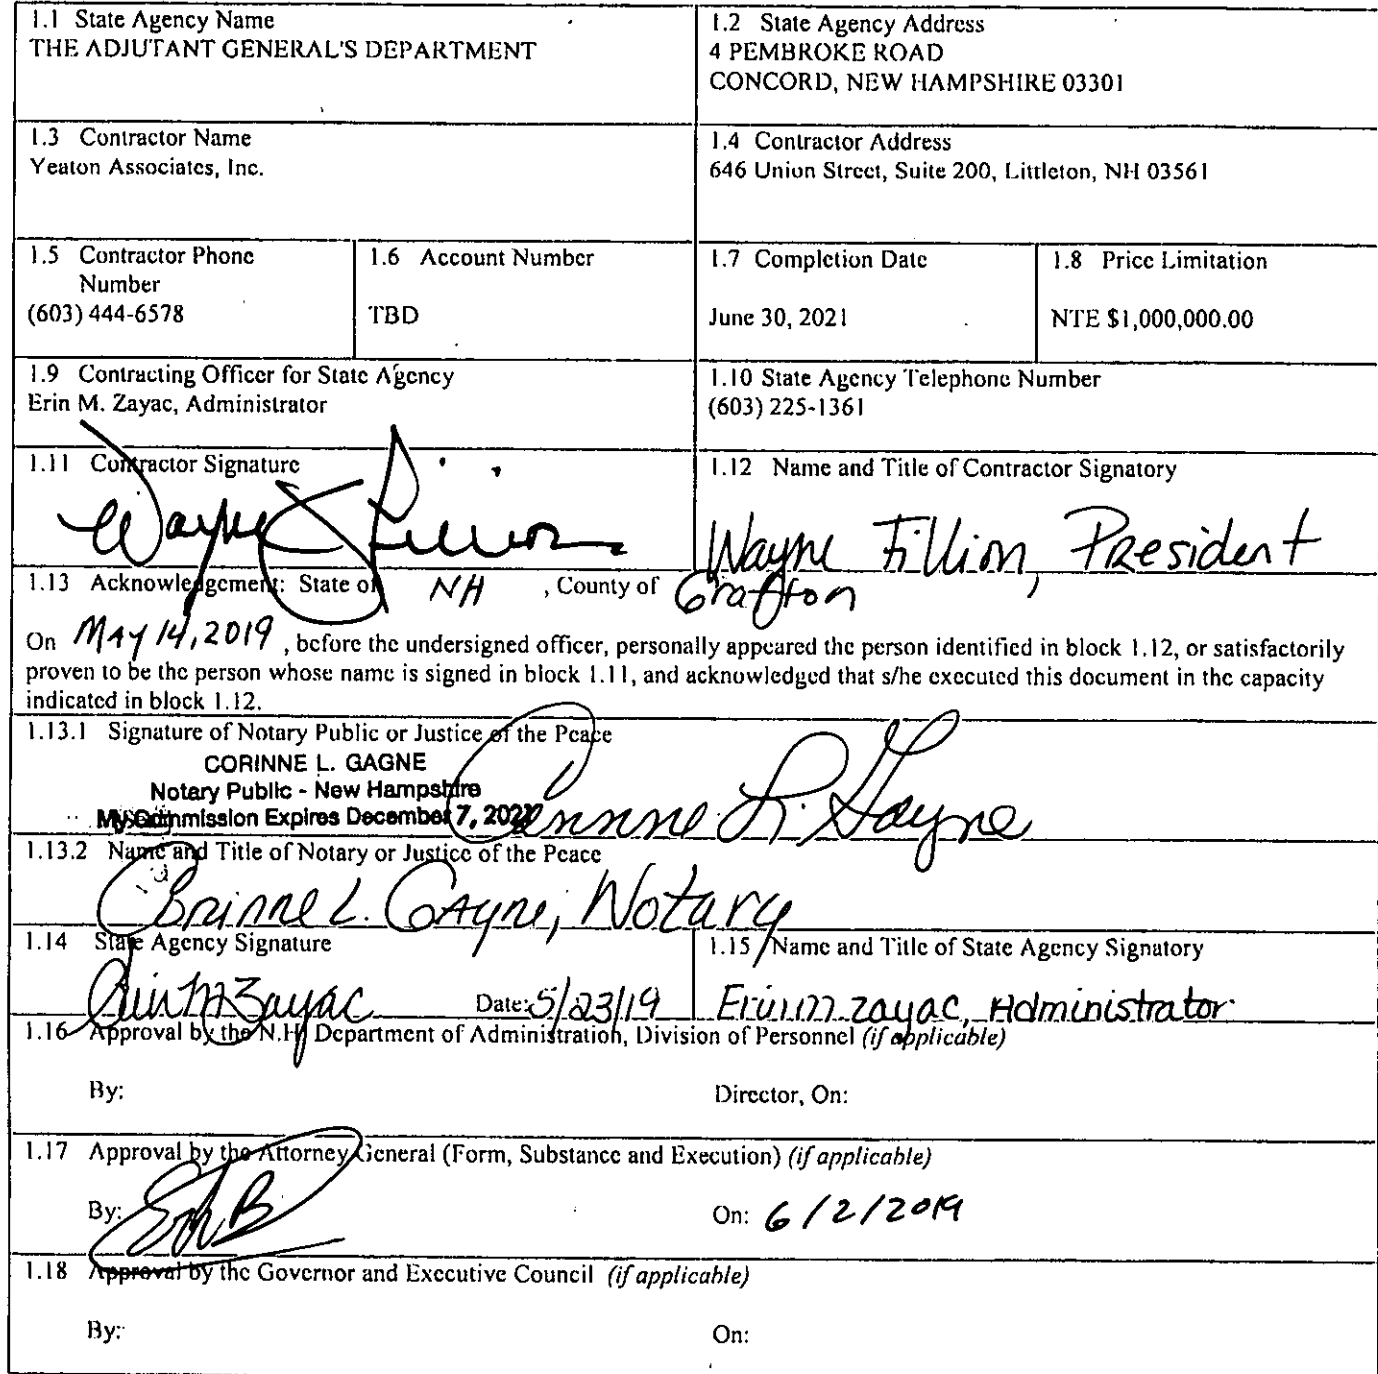 1.1 State Agency Name
THE ADJUTANT GENERAL'S DEPARTMENT
1.2 State Agency Address
4 PEMBROKE ROAD
CONCORD, NEW HAMPSHIRE 03301
1.3 Contractor Name
Yeaton Associates, Inc.
1.4 Contractor Address
646 Union Street, Suite 200, Littleton, NH 03561
1.5 Contractor Phone
Number
(603) 444-6578
1.6 Account Number
TBD
1.7 Completion Date
June 30, 2021
1.8 Price Limitation
NTE $1,000,000.00
1.9 Contracting Officer for State Agency
Erin M. Zayac, Administrator
1.10 State Agency Telephone Number
(603) 225-1361
1.11 Contractor Signature
Wayne Fillion
1.12 Name and Title of Contractor Signatory
Wayne Fillion, President
1.13 Acknowledgement: State of NH , County of Grafton
On MAY 14, 2019 , before the undersigned officer, personally appeared the person identified in block 1.12, or satisfactorily
proven to be the person whose name is signed in block 1.11, and acknowledged that s/he executed this document in the capacity
indicated in block 1.12.
1.13.1 Signature of Notary Public or Justice of the Peace
CORINNE L. GAGNE
Notary Public - New Hampshire
My Commission Expires December 7,
Corinne L. Gagne
1.13.2 Name and Title of Notary or Justice of the Peace
Corinne L. Gagne, Notary
1.14 State Agency Signature
Erin M Zayac Date: 5/23/19
1.15 Name and Title of State Agency Signatory
Erin M Zayac, Administrator
1.16 Approval by the N.H. Department of Administration, Division of Personnel (if applicable)
By:
Director, On:
1.17 Approval by the Attorney General (Form, Substance and Execution) (if applicable)
By:
On: 6/2/2019
1.18 Approval by the Governor and Executive Council (if applicable)
By:
On: